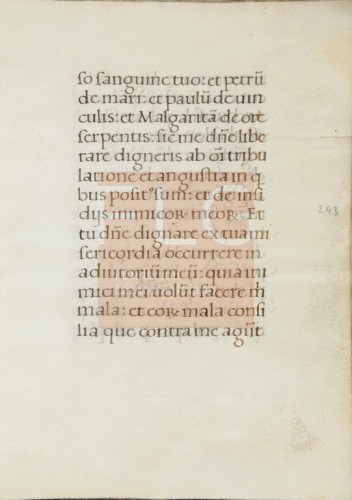 so sanguine tuo: et petrū
de mari: et paulū de uin
culis: et Malgaritā de ore
serpentis: sic me dn̄e libe
rare digneris ab oī tribu
latione et angustia in q
bus positꝰ sum: et de insi
dijs inimicoꝝ meoꝝ. Et
tu dn̄e dignare ex tua mi
sericordia occurrere in
adiutoriū meū: quia ini
mici mei uolūt facere m̄
mala: et eoꝝ mala consi
lia que contra me agūt
243
FLG